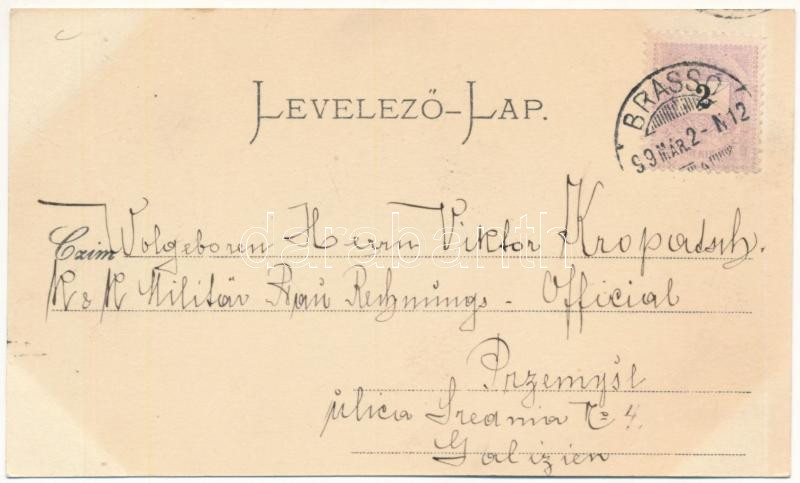 LEVELEZŐ-LAP.
BRASSÓ
2
99 MÁR. 2 - N12
Czim Wolgeboren Herrn Viktor Kropatsch.
K & K Militär Bau Rechnungs - Official
Przemyśl
ulica Srednia No 4.
Galizien
darabanth